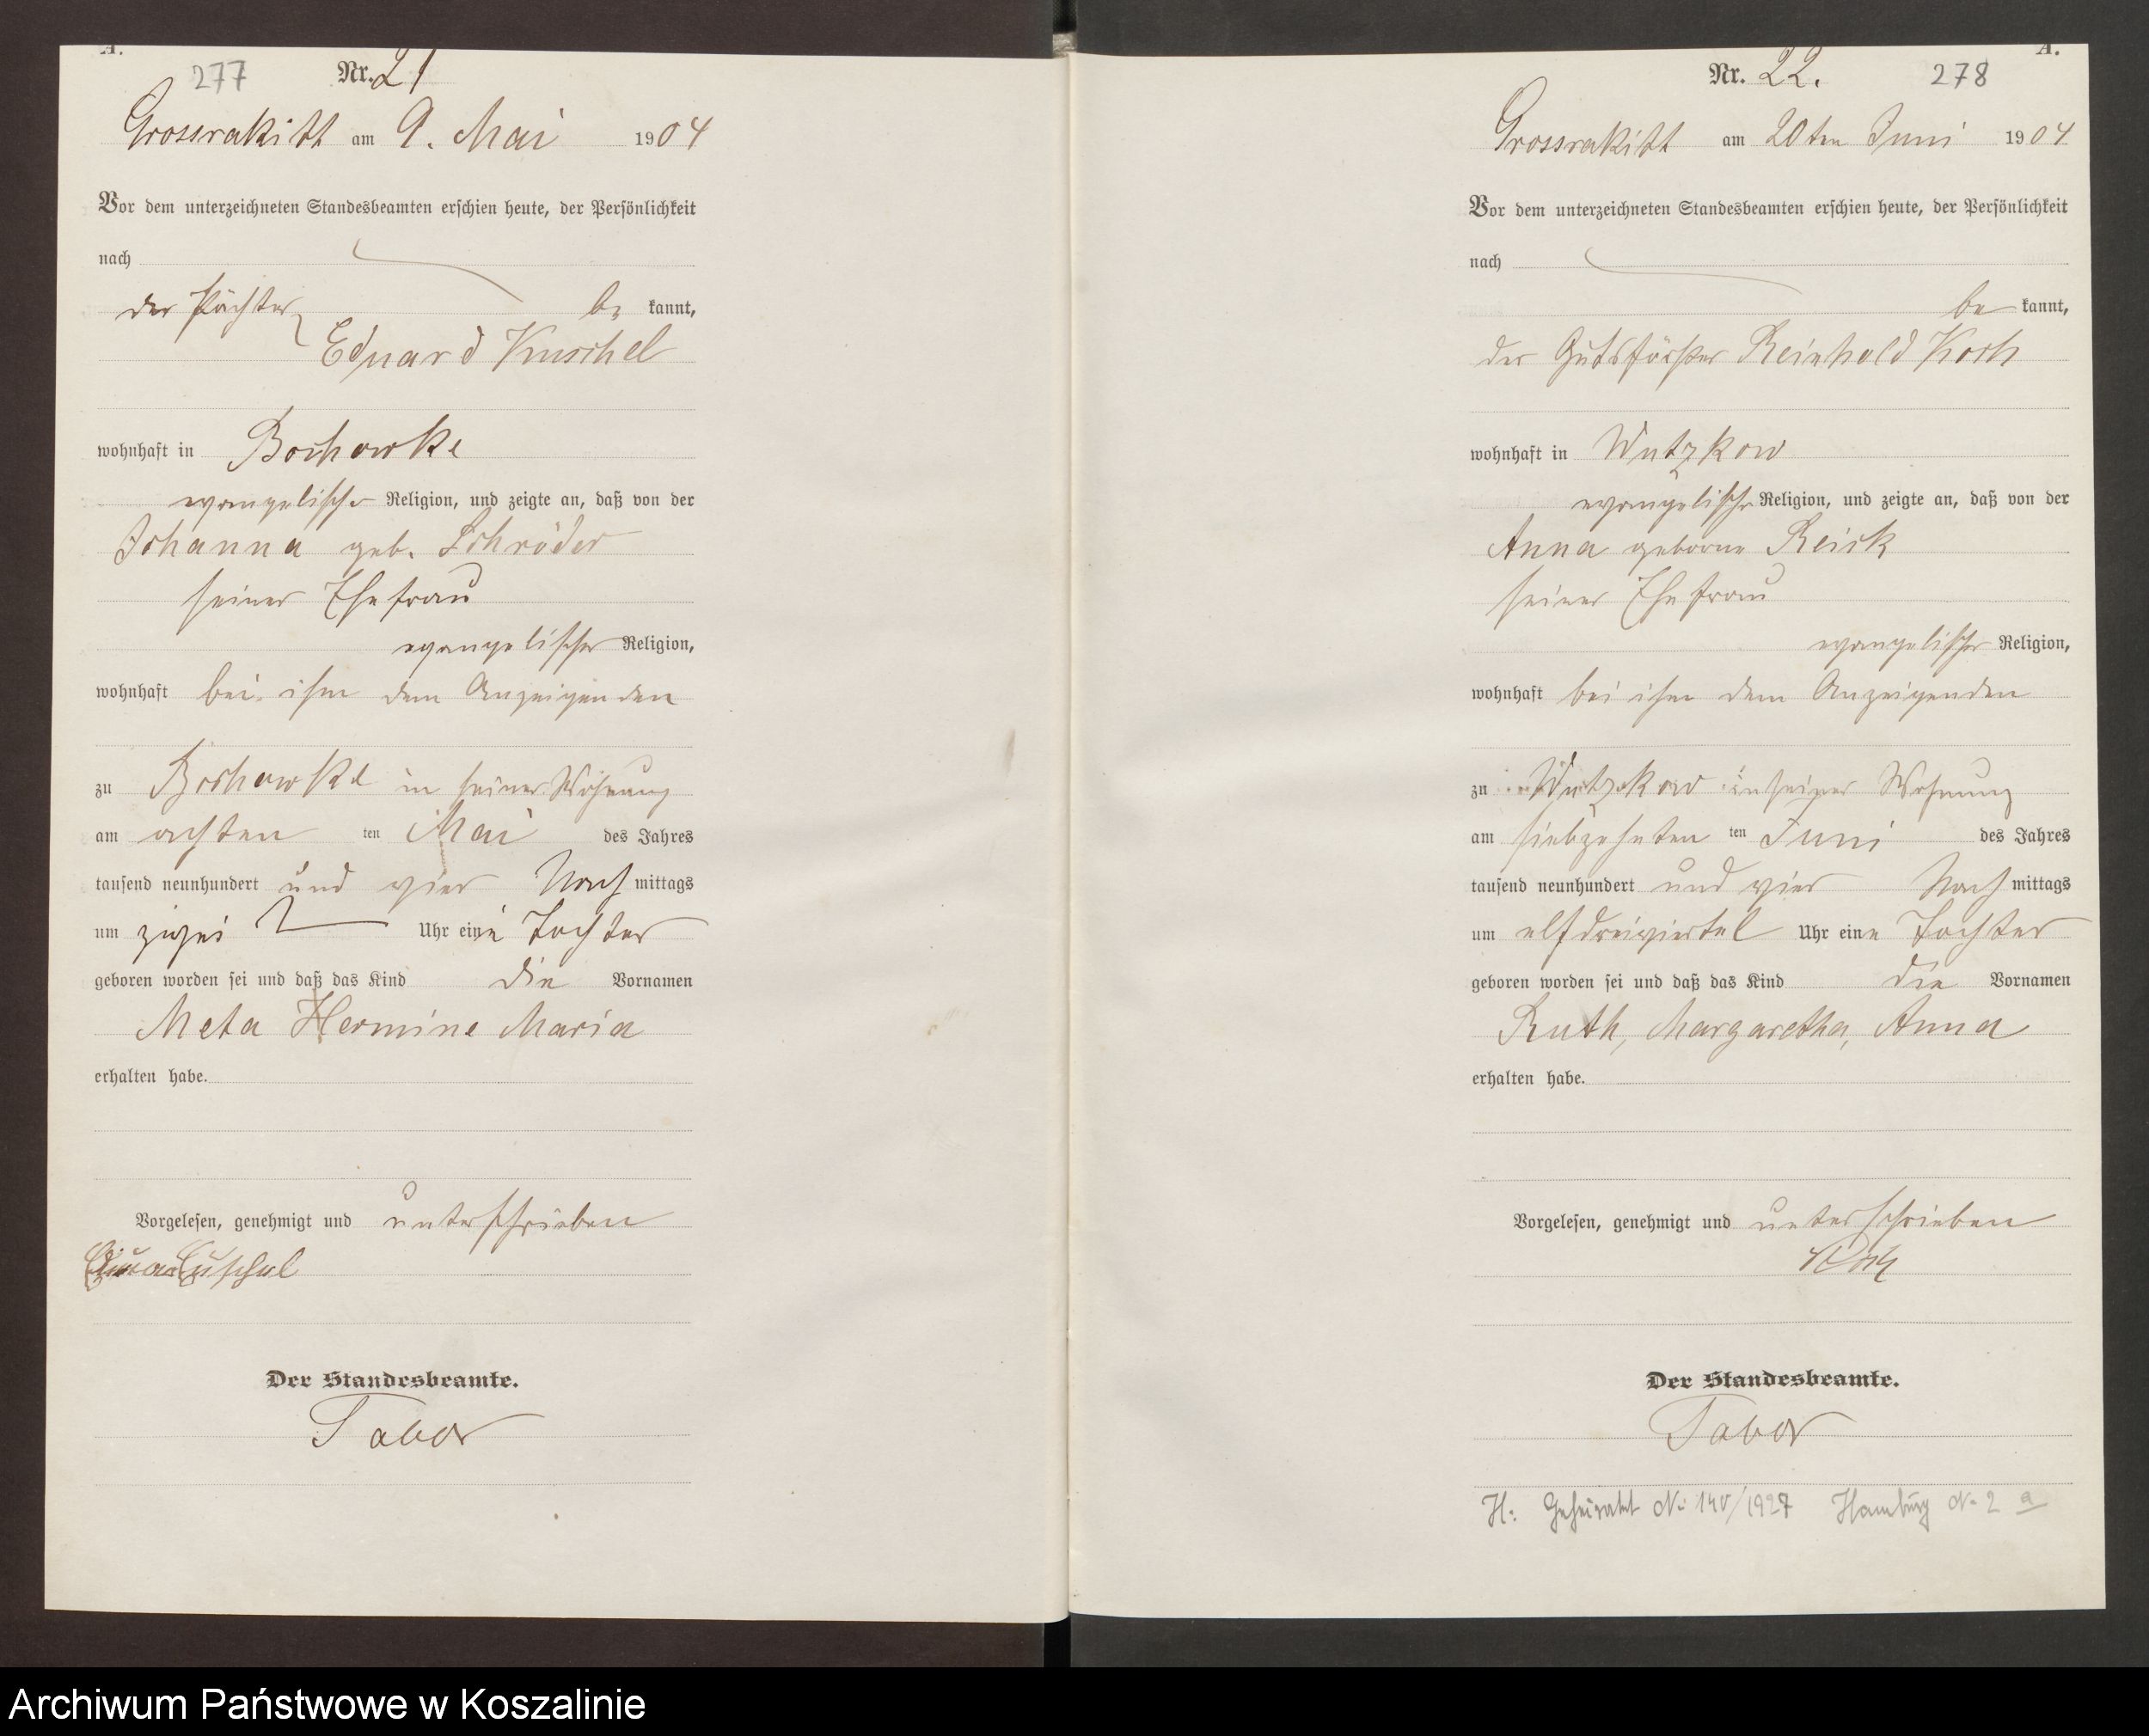 A.
277 Nr. 21
Grossrakitt am 9. Mai 1904
Vor dem unterzeichneten Standesbeamten erschien heute, der Persönlichkeit
nach
der Pächter be kannt,
Eduard Kuschel
wohnhaft in Bochowke
evangelischer Religion, und zeigte an, daß von der
Johanna geb. Schröder
seiner Ehefrau
evangelischer Religion,
wohnhaft bei ihm dem Anzeigenden
zu Bochowke in seiner Wohnung
am achten ten Mai des Jahres
tausend neunhundert und vier Nach mittags
um zwei Uhr eine Tochter
geboren worden sei und daß das Kind die Vornamen
Meta Hermine Maria
erhalten habe.
Vorgelesen, genehmigt und unterschrieben
Kuschel
Der Standesbeamte.
Tabor
A.
Nr. 22. 278
Grossrakitt am 20ten Juni 1904
Vor dem unterzeichneten Standesbeamten erschien heute, der Persönlichkeit
nach
be kannt,
der Gutsförster Reinhold Koch
wohnhaft in Wutzkow
evangelischer Religion, und zeigte an, daß von der
Anna geborne Reick
seiner Ehefrau
evangelischer Religion,
wohnhaft bei ihm dem Anzeigenden
zu Wutzkow in seiner Wohnung
am siebzehnten ten Juni des Jahres
tausend neunhundert und vier Nach mittags
um elfdreiviertel Uhr eine Tochter
geboren worden sei und daß das Kind die Vornamen
Ruth, Margaretha, Anna
erhalten habe.
Vorgelesen, genehmigt und unterschrieben
Koch
Der Standesbeamte.
Tabor
H: Geheiratet No 140/1927 Hamburg No 2 a
Archiwum Państwowe w Koszalinie